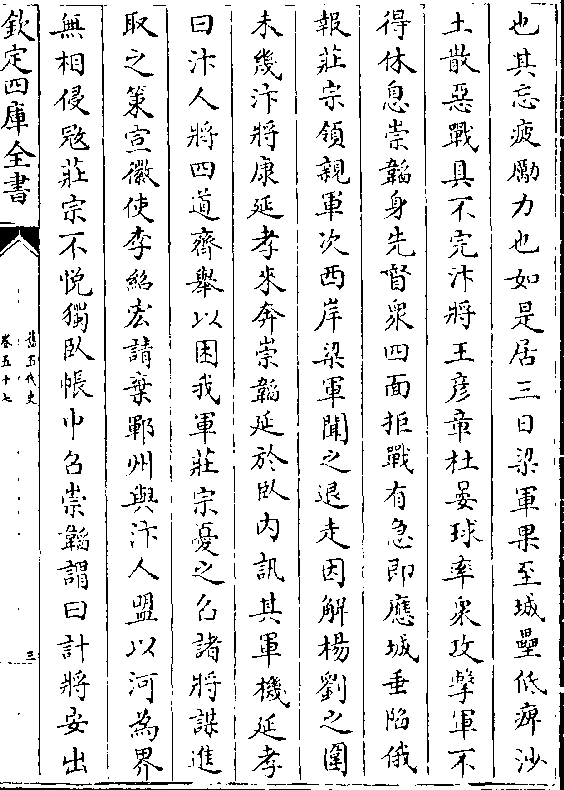 也其忘疲勵力也如是居三日梁軍果至城壘低痺沙
土散惡戰具不完汴將王彦章杜晏球率衆攻擊軍不
得休息崇韜身先督衆四面拒戰有急即應城垂陷俄
報莊宗領親軍次西岸梁軍聞之退走因解楊劉之圍
未幾汴將康延孝來奔崇韜延於臥内訊其軍機延孝
曰汴人將四道齊舉以困我軍莊宗憂之召諸將謀進
取之策宣徽使李紹宏請棄鄆州與汴人盟以河為界
無相侵冦莊宗不悦獨臥帳中召崇韜謂曰計將安出
欽定四庫全書
舊五代史
卷五十七
三